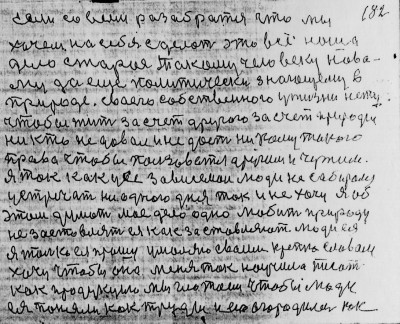 182
если со всеми разабратя что мы
хочем на себя сделают это всё наша
дело старая такому человеку нова
му да еще политически знающему в
природе. своего собственного у жизни нету
чтобы жить за счет другого за счет природы
никто не довал и не даст никому такого
права чтобы пользоватя другим и чужим.
я так как уже зависемои люди не сабираю
устричат ни одного дня так и не хочу я об
этом думать мае дело одно любить природу
не заставлят ея как заставляют люди ея
я только ея прошу умоляю своими крепко словам
хочу чтобы она меня так научила писат
как продукцию мы глотаем чтобы люди
ея поняли как труды и не огородилас как